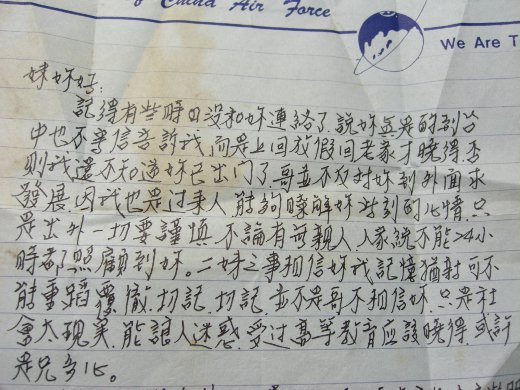 of China Air Force
We Are T
妹妳好:
記得有些時日沒和妳連絡了,說妳並是的到台
中也不寫信告訴我,而是上回放假回老家才曉得,否
則我還不知道妳已出門了,哥並不反對妳到外面求
發展,因我也是过來人,能夠瞭解妳此刻的心情,只
是出外一切要謹慎,不論有何親人,人家總不能24小
時都照顧到妳。二妹之事相信妳我記憶猶新可不
能重蹈覆徹,切記,切記,並不是哥不相信妳,只是社
會太現实,能讓人迷惑,受过高等教育应該曉得,或許
是兄多心。